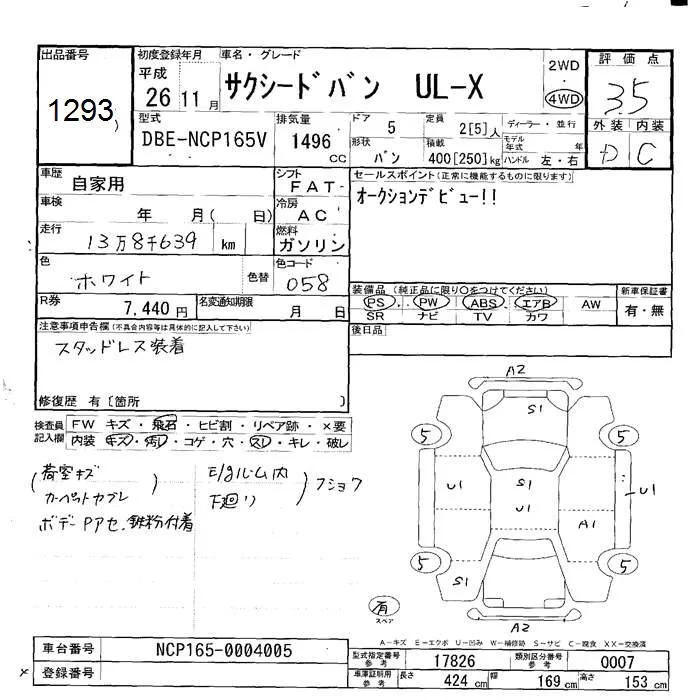 出品番号 初度登録年月 車名・グレード 評価点
1293 平成 26 11月 サクシードバン UL-X 2WD 4WD 3.5
型式 排気量 ドア 定員 ディーラー・並行 外装 内装
DBE-NCP165V 1496 cc 5 2[5]人 モデル年式 年 D C
形状 バン 積載 400[250]kg ハンドル 左・右
車歴 自家用 シフト FAT セールスポイント(正常に機能するものに限ります)
車検 年 月( 日) 冷房 AC オークションデビュー!!
走行 13万8千639 km 燃料 ガソリン
色 ホワイト 色替 色コード 058
装備品(純正品に限り○をつけてください) 新車保証書
R券 7,440円 名変通知期限 月 日 PS PW ABS エアB AW 有・無
SR ナビ TV カワ
注意事項申告欄(不具合内容等は具体的に記入して下さい) 後日品
スタッドレス装着
修復歴 有〔箇所 〕
検査員記入欄 FW キズ・飛石・ヒビ割・リペア跡・×要
内装 キズ・汚レ・コゲ・穴・スレ・キレ・破レ
(荷室キズ カーペットカブレ) E/gルーム内 下廻り)フショウ
ボデーPアセ、鉄粉付着
A2
S1
5 5
U1 S1 U1
U1 A1
5 5
S1
有 スペア
A2
A-キズ E-エクボ U-凹み W-補修跡 S-サビ C-腐食 XX-交換済
車台番号 NCP165-0004005 型式指定番号 参考 17826 類別区分番号 参考 0007
登録番号 車庫証明用 参考 長さ 424 cm 幅 169 cm 高さ 153 cm